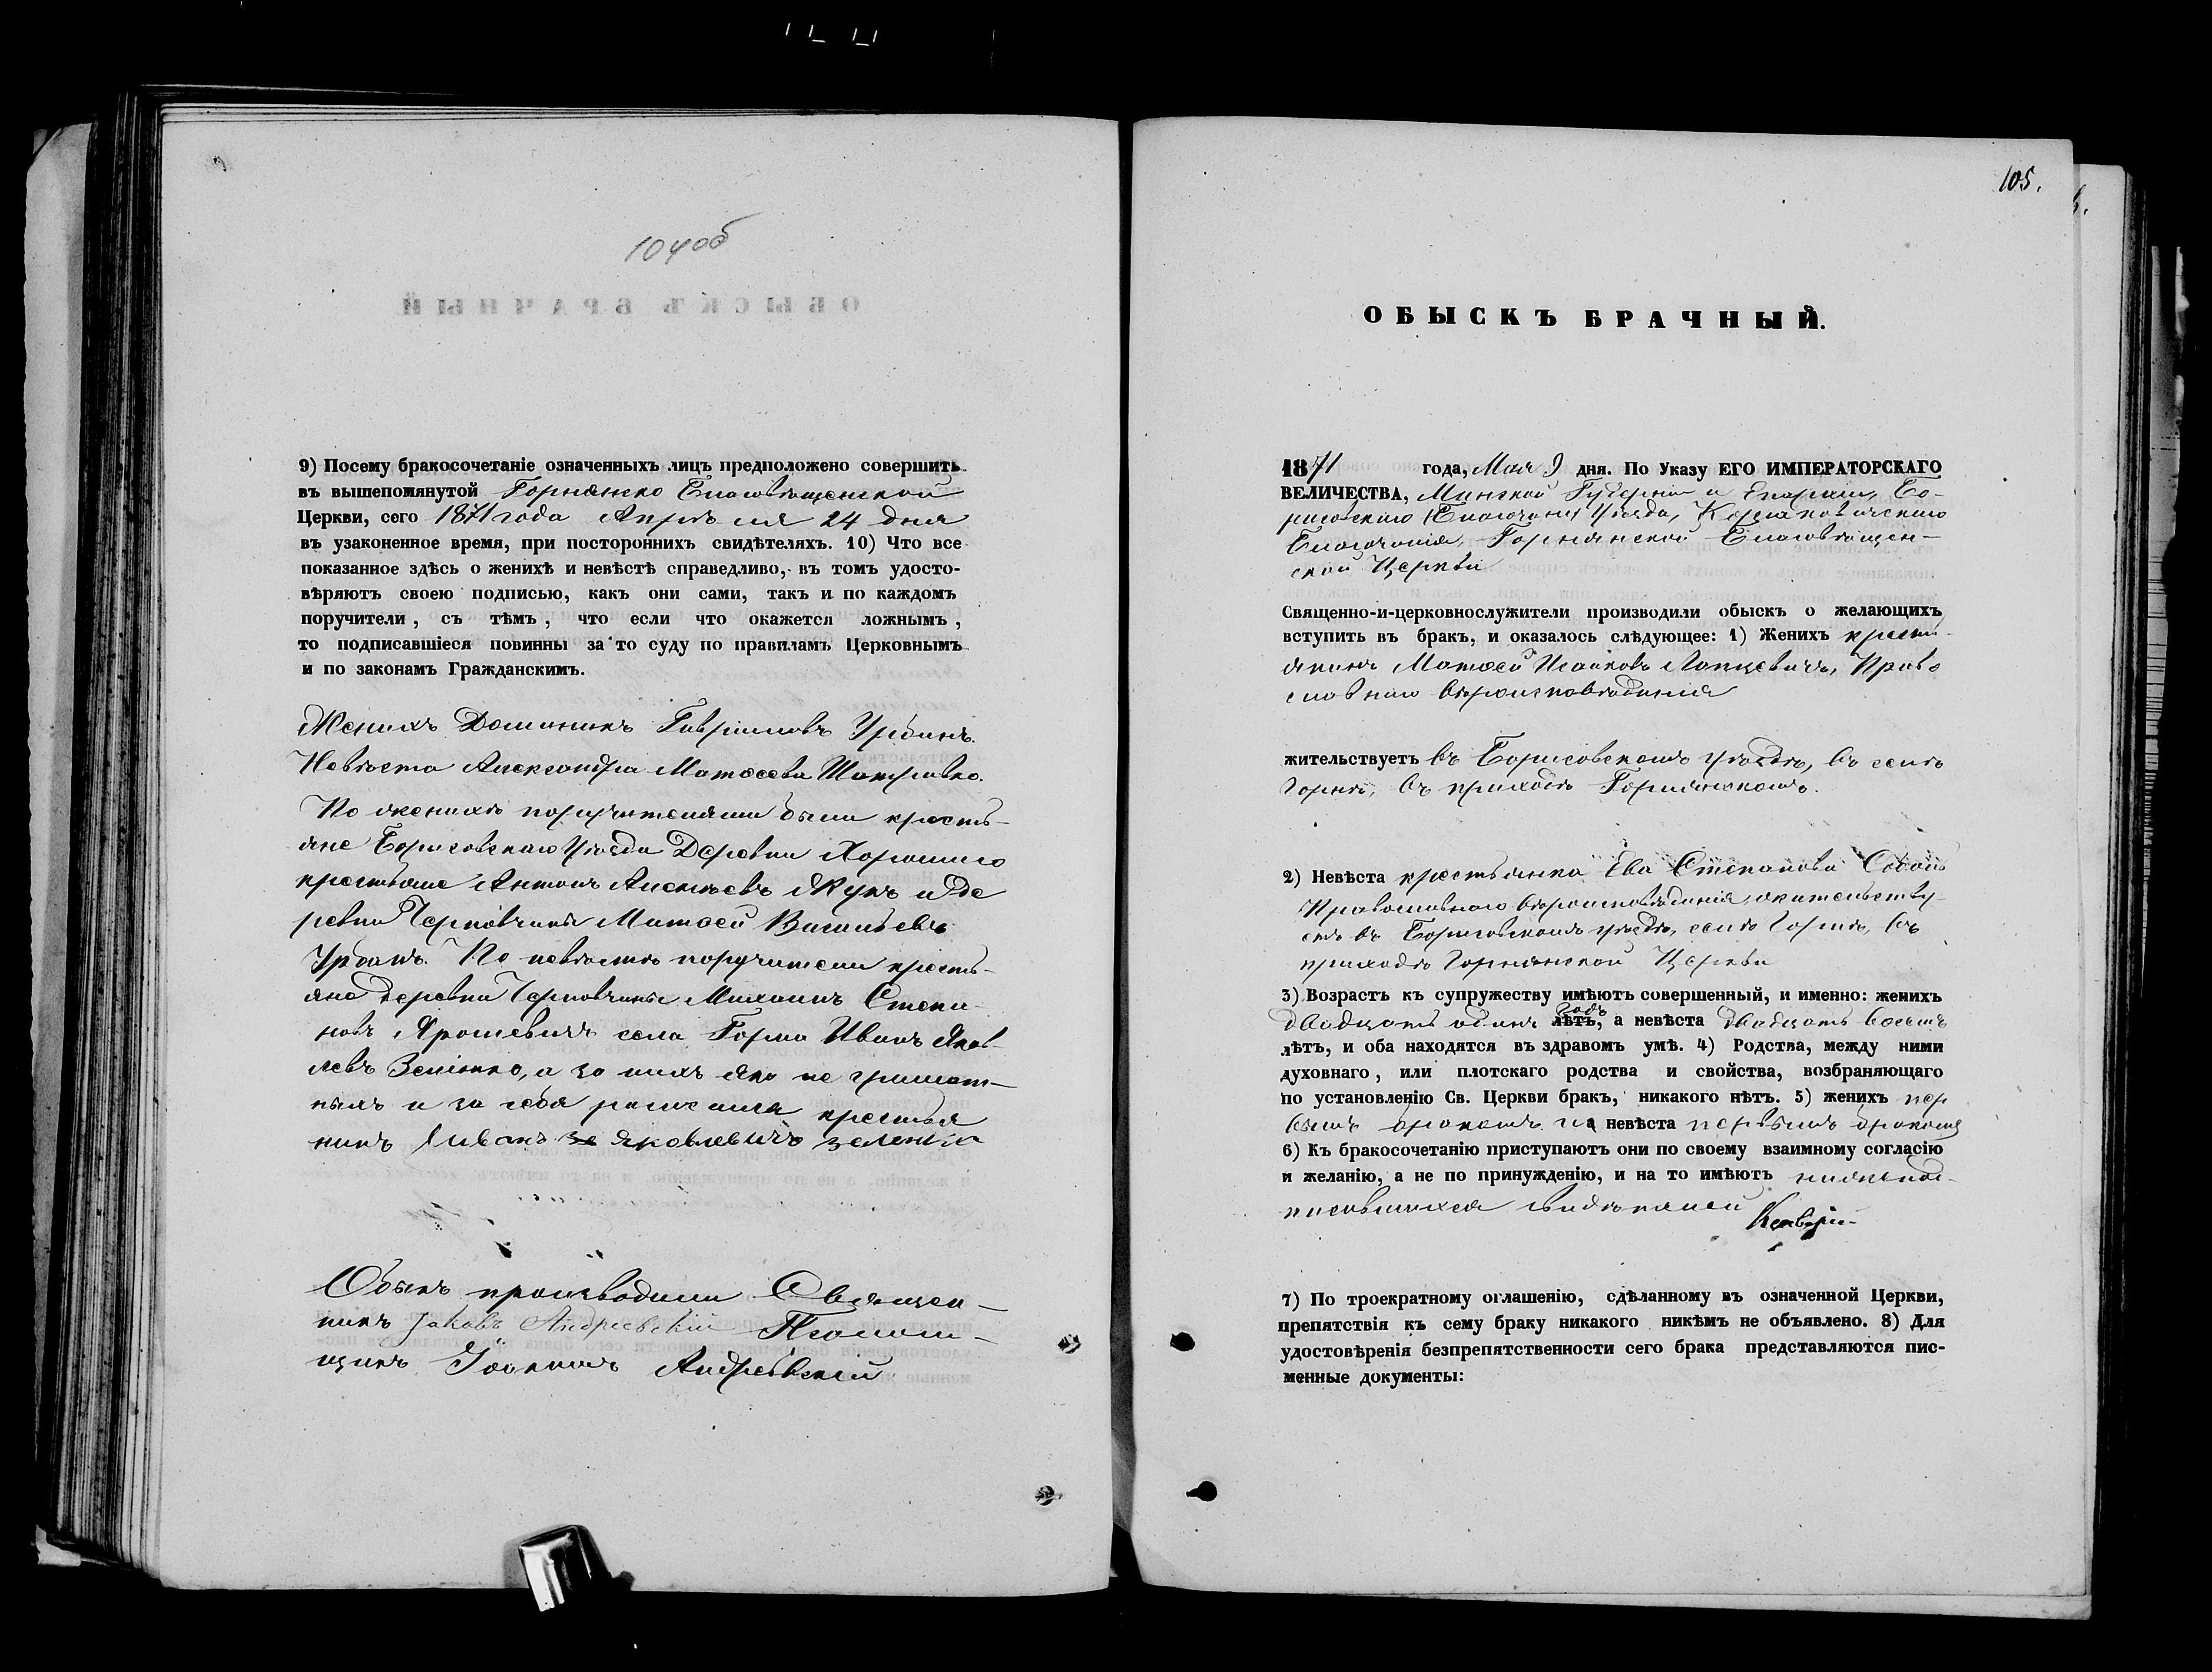 104об
9) Посему бракосочетаніе означенныхъ лицъ предположено совершить
въ вышепомянутой Горнянско Благовѣщенской
Церкви, сего 1871 года Апрѣля 24 дня
въ узаконенное время, при постороннихъ свидѣтеляхъ. 10) Что все
показанное здѣсь о женихѣ и невѣстѣ справедливо, въ томъ удосто-
вѣряютъ своею подписью, какъ они сами, такъ и по каждомъ
поручители, съ тѣмъ, что если что окажется ложнымъ,
то подписавшіеся повинны за то суду по правиламъ Церковнымъ
и по законамъ Гражданскимъ.
Женихъ Доминикъ Гавриловъ Урбанъ.
Невѣста Александра Матѳеева
По женихѣ поручителями были кресть-
яне Борисовскаго Уѣзда Деревни Хорошаго
крестьяне Антонъ Алексѣевъ Жукъ и де
ревни Черновчины Матѳей Васильевъ
Урбанъ. По невѣстѣ поручители кресть-
яне деревни Черновчины Михаилъ Степа
новъ Ярошевичъ села Горна Иванъ Яков-
левъ Зеленко, а за нихъ яко не грамот-
ныхъ и за себя росписался крестья
нинъ Иванъ Яковлевичъ зеленко
Обыскъ производили Священ-
никъ Jаковъ Андреевскій Псалом-
щикъ Андреевскій
105.
ОБЫСКЪ БРАЧНЫЙ.
1871 года, Мая 9 дня. По Указу ЕГО ИМПЕРАТОРСКАГО
ВЕЛИЧЕСТВА, Минской Губерніи и Епархіи, Бо-
рисовскаго Уѣзда,
Благочинія, Горнянской Благовѣщен-
ской Церкви
Священно-и-церковнослужители производили обыскъ о желающихъ
вступить въ брак, и оказалось слѣдующее: 1) Женихъ кресть-
янинъ Матѳей Исааковъ Лапцевичъ, Право
славнаго вѣроисповѣданія
жительствуетъ въ Борисовскомъ уѣздѣ, въ селѣ
Горнѣ, въ приходѣ Горнянскомъ.
2) Невѣста крестьянка Ева Степанова Соболь
Православнаго вѣроисповѣданія, жительству-
етъ въ Борисовскомъ уѣздѣ, селѣ Горнѣ, въ
приходѣ Горнянской Церкви
3) Возрастъ къ супружеству имѣютъ совершенный, и именно: женихъ
двадцать одинъ лѣтъ, годъ а невѣста двадцать восемь
лѣтъ, и оба находятся въ здравомъ умѣ. 4) Родства, между ними
духовнаго, или плотскаго родства и свойства, возбраняющаго
по установленію Св. Церкви бракъ, никакого нѣтъ. 5) женихъ пер
вымъ бракомъ а невѣста первымъ бракомъ
6) Къ бракосочетанію приступаютъ они по своему взаимному согласію
и желанію, а не по принужденію, и на то имѣютъ нижепод-
писавшихся свидѣтелей
7) По троекратному оглашенію, сдѣланному въ означенной Церкви,
препятствія къ сему браку никакого никѣмъ не объявлено. 8) Для
удостовѣренія безпрепятственности сего брака представляются пис-
менные документы: